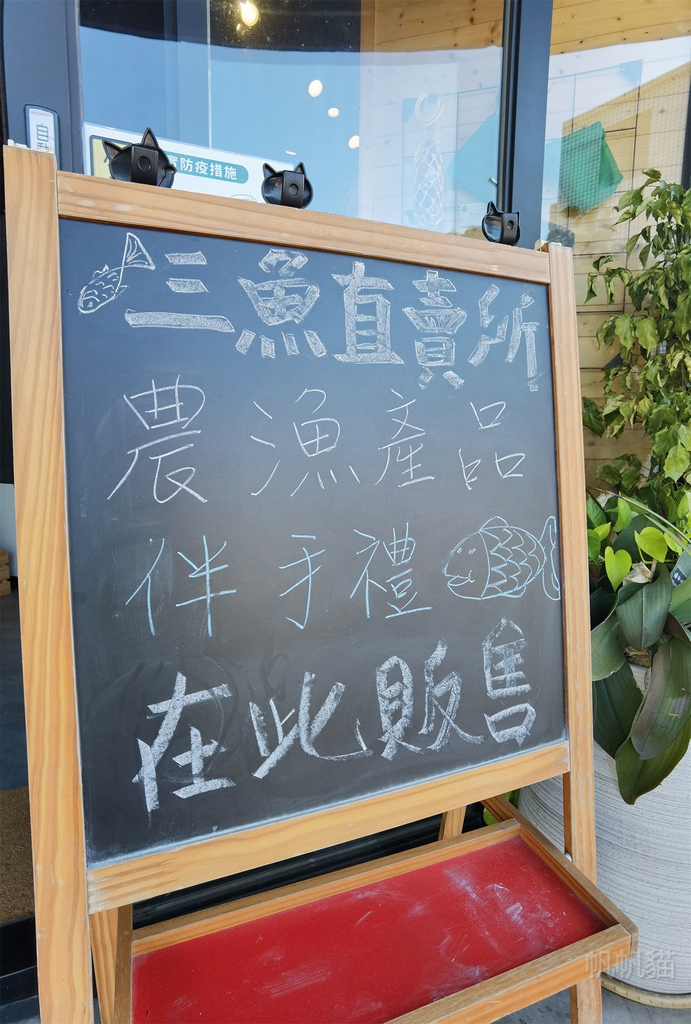 自動
防疫措施
三魚直賣所
農漁產品
伴手禮
在此販售
帆帆貓